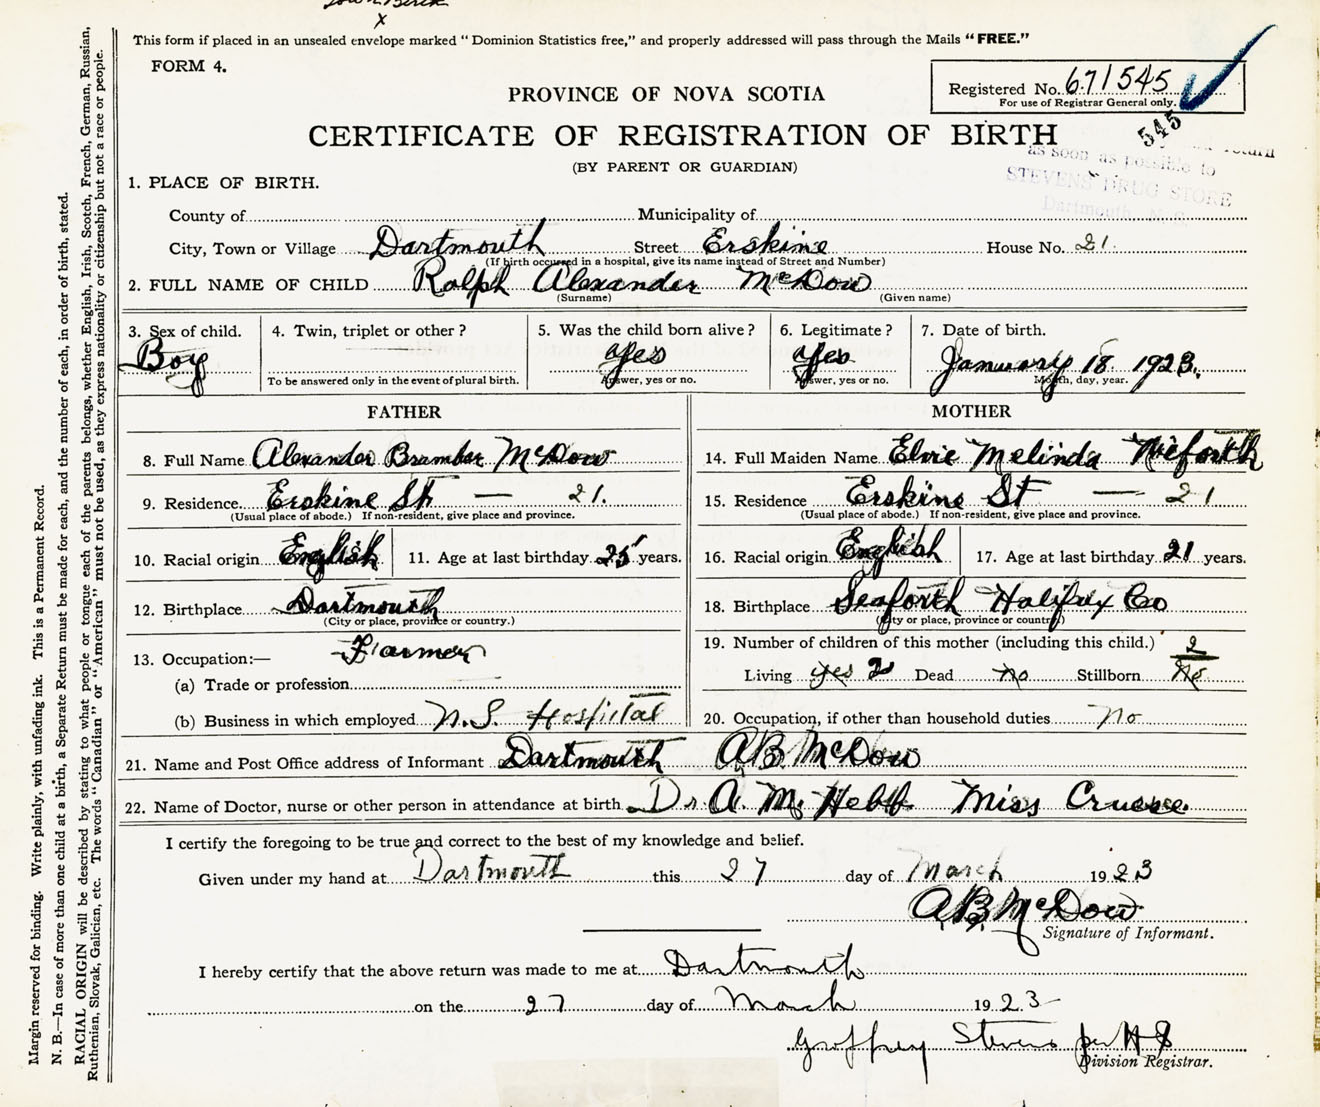 Town Birth
x
This form if placed in an unsealed envelope marked "Dominion Statistics free," and properly addressed will pass through the Mails "FREE."
FORM 4.
Registered No. 671545
For use of Registrar General only.
545
PROVINCE OF NOVA SCOTIA
CERTIFICATE OF REGISTRATION OF BIRTH
(BY PARENT OR GUARDIAN)
return
as soon as possible to
STEVENS DRUG STORE
Dartmouth, N. S.
1. PLACE OF BIRTH.
County of Municipality of
City, Town or Village Dartmouth Street Erskine House No. 21.
(If birth occurred in a hospital, give its name instead of Street and Number)
2. FULL NAME OF CHILD Ralph Alexander McDow
(Surname) (Given name)
3. Sex of child. 4. Twin, triplet or other? 5. Was the child born alive? 6. Legitimate? 7. Date of birth.
Boy yes yes. January 18. 1923.
To be answered only in the event of plural birth. Answer, yes or no. Answer, yes or no. Month, day, year.
FATHER MOTHER
8. Full Name Alexander Bramber McDow 14. Full Maiden Name Elvie Melinda Nieforth
9. Residence Erskine St — 21. 15. Residence Erskine St — 21
(Usual place of abode.) If non-resident, give place and province. (Usual place of abode.) If non-resident, give place and province.
10. Racial origin English 11. Age at last birthday 25 years. 16. Racial origin English 17. Age at last birthday 21 years.
12. Birthplace Dartmouth 18. Birthplace Seaforth Halifax Co
(City or place, province or country.) (City or place, province or country)
13. Occupation:— Farmer 19. Number of children of this mother (including this child.) 2
(a) Trade or profession Living yes 2 Dead no Stillborn No
(b) Business in which employed N.S. Hospital 20. Occupation, if other than household duties no
21. Name and Post Office address of Informant Dartmouth AB McDow
22. Name of Doctor, nurse or other person in attendance at birth Dr. A. M. Hebb. Miss
I certify the foregoing to be true and correct to the best of my knowledge and belief.
Given under my hand at Dartmouth this 27 day of March 1923
AB McDow
Signature of Informant.
I hereby certify that the above return was made to me at Dartmouth
on the 27 day of March 1923
Geoffrey Stevens per HS
Division Registrar.
Margin reserved for binding. Write plainly, with unfading ink. This is a Permanent Record.
N. B.—In case of more than one child at a birth, a Separate Return must be made for each, and the number of each, in order of birth, stated.
RACIAL ORIGIN will be described by stating to what people or tongue each of the parents belongs, whether English, Irish, Scotch, French, German, Russian,
Ruthenian, Slovak, Galician, etc. The words "Canadian" or "American" must not be used, as they express nationality or citizenship but not a race or people.